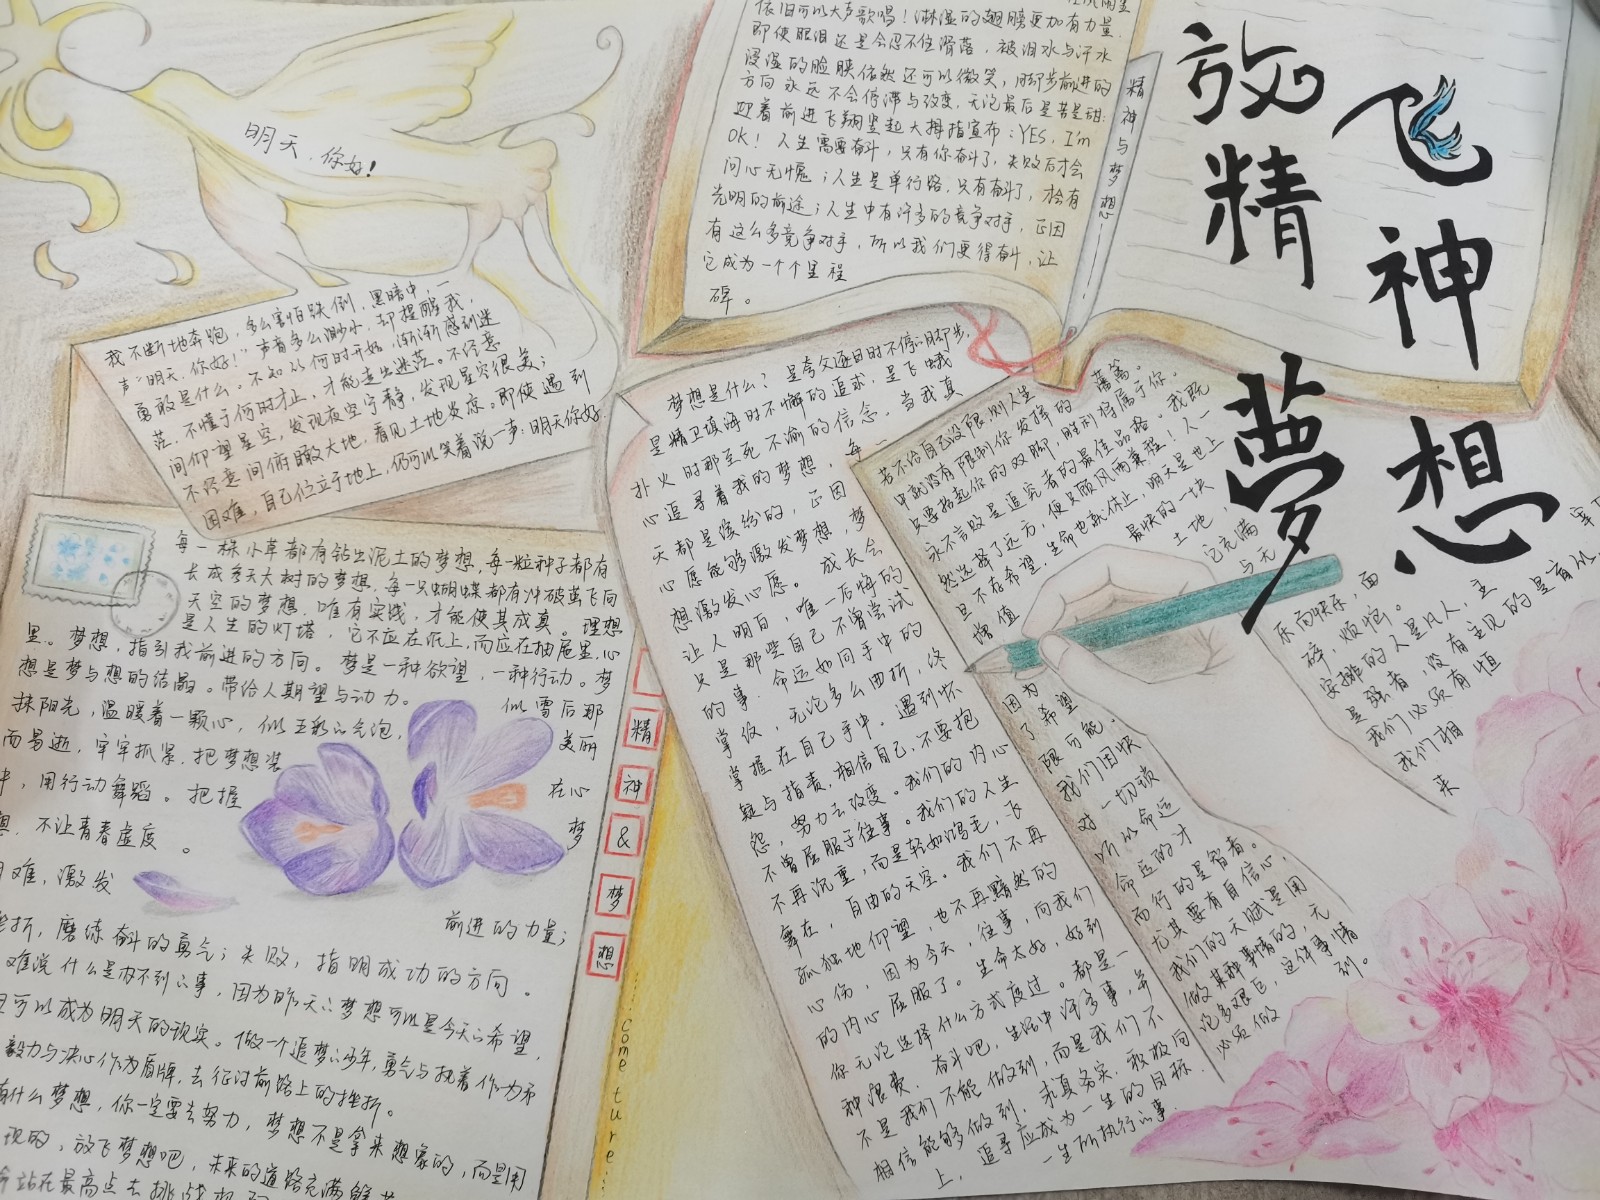 放飞
精神
夢想
明天、你好！
我不断地奔跑，多么害怕跌倒，黑暗中，一
声“明天，你好！”声音多么渺小，却提醒我，
勇敢是什么。不知从何时开始，渐渐感到迷
茫，不懂于何时才止，才能走出迷茫。不经意
间仰望星空，发现夜空宁静，发现星空很美；
不经意间俯瞰大地，看见土地发凉。即使遇到
困难，自己位立于地上，仍可以笑着说一声：明天你好
每一株小草都有钻出泥土的梦想，每一粒种子都有
长成参天大树的梦想，每一只蝴蝶都有冲破茧飞向
天空的梦想，唯有实践，才能使其成真。理想
是人生的灯塔，它不应在纸上，而应在抽屉里，心
里。梦想，指引我前进的方向。梦是一种欲望，一种行动。梦
想是梦与想的结晶。带给人期望与动力。
抹阳光，温暖着一颗心，似五彩的气泡，似雪后那
而易逝，牢牢抓紧，把梦想装美丽
中，用行动舞蹈。把握在心
想，不让青春虚度。梦
难，激发
挫折，磨练奋斗的勇气；失败，指明成功的方向。前进的力量；
难说什么是办不到的事，因为昨天的梦想可以是今天的希望，
可以成为明天的现实。做一个追梦的少年，勇气与执着作为矛
毅力与决心作为盾牌，去征讨前路上的挫折。
什么梦想，你一定要去努力，梦想不是拿来想象的，而是用
现的，放飞梦想吧，未来的道路充满
站在最高点去挑战
精神&梦想
......come ture......
依旧可以大声歌唱！淋湿的翅膀更加有力量，
即使眼泪还是会忍不住滑落，被泪水与汗水
浸湿的脸颊依然还可以微笑，用脚步前进的
方向永远不会停滞与改变，无论最后是苦是甜；
迎着前进飞翔竖起大拇指宣布：YES，I'm
OK！人生需要奋斗，只有你奋斗了，失败后才会
问心无愧；人生是单行路，只有奋斗了，才会有
光明的前途；人生中有许多的竞争对手，正因
有这么多竞争对手，所以我们更得奋斗，让
它成为一个个里程
碑。
精神与梦想
梦想是什么？是夸父逐日时不停的脚步，
是精卫填海时不懈的追求，是飞蛾
扑火时那至死不渝的信念。当我真
心追寻着我的梦想，每
天都是缤纷的，正因
心愿能够激发梦想，梦
想激发心愿。成长会
让人明白，唯一后悔的
只是那些自己不曾尝试
的事。命运如同手中的
掌纹，无论多么曲折，终
掌握在自己手中。遇到怀
疑与指责，相信自己，不要抱
怨，努力去改变。我们的内心
不曾屈服于往事。我们的人生
不再沉重，而是轻如鸿毛，飞
舞在，自由的天空。我们不再
孤独地仰望，也不再黯然的
心伤，因为今天，往事，向我们
的内心屈服了。生命太好，好到
你无论选择什么方式度过。都是一
种浪费，奋斗吧，生活中许多事，并
不是我们不能做到，而是我们不
相信能够做到，求真务实，积极向
上，追寻应成为一生的目标
一生所执行的事
若不给自己设限，则人生
中就没有限制你发挥的藩篱。
只要抬起你的双脚，胜利将属于你。
永不言败是追究者的最佳品格。我既
然选择了远方，便只顾风雨兼程！人一
旦不在希望，生命也就休止，明天是世上
增值最快的一块
土地，
它充满
与无
因为
了希望
限可能。
我们因快乐而快乐，面
对一切琐碎，烦恼。
听从命运安排的人是凡人，主
命运的才是强者，没有主见的是盲从
而行的是智者。我们必须有恒
尤其要有自信心，我们相
我们的天赋是用来
做某种事情的，无
论多艰巨，这件事情
必须做到。